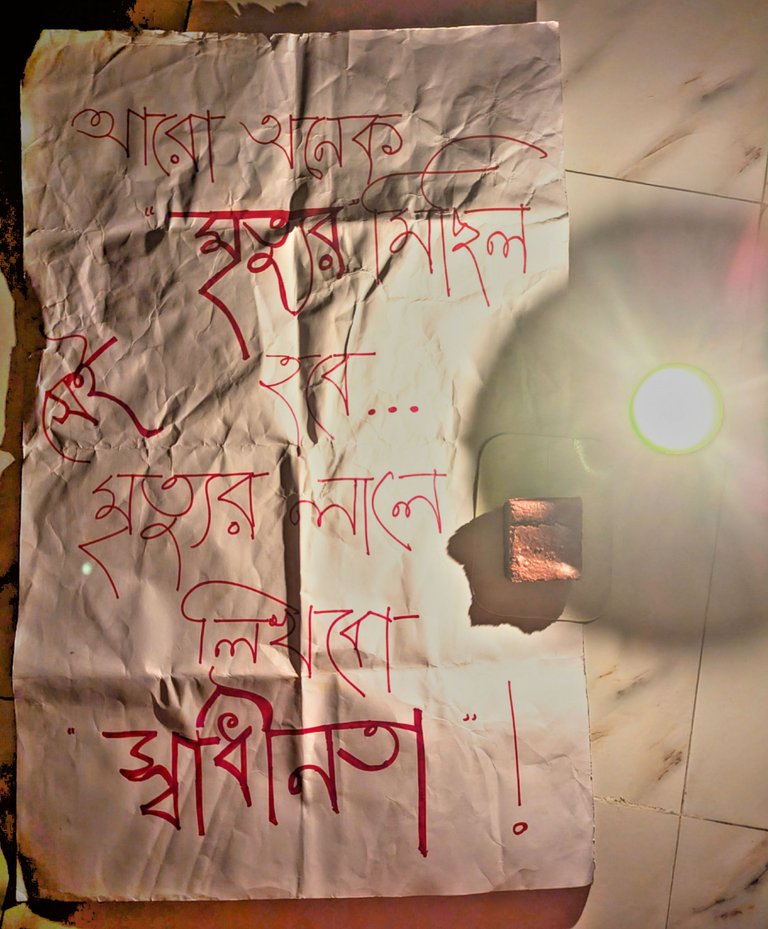 আরো অনেক
"মৃত্যুর" মিছিল
হবে...
মৃত্যুর লালে
লিখবো
"স্বাধীনতা" !